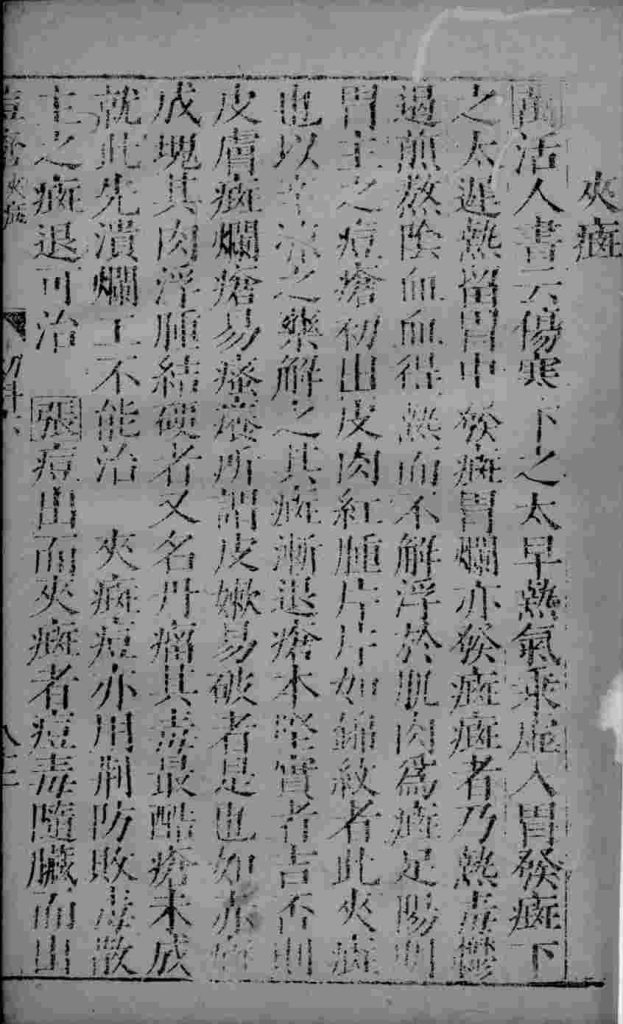 夾痲
萬活人書云傷寒下之太早熱氣乘虛入胃發痲下
之太遲熱留胃中發痲胃爛亦發痲痲者乃熱毒鬱
過煎熬陰血血得熱而不解浮於肌肉為痲足陽明
胃主之痘瘡初出皮肉紅腫片片如錦紋者此夾痲
也以辛涼之藥解之其痲漸退瘡本堅實者吉否則
皮膚痲爛瘡易瘙癢所謂皮嫩易破者是也如赤痲
成塊其肉浮腫結硬者又名丹瘤其毒最酷瘡未成
就此先潰爛工不能治 夾痲痘亦用荊防敗毒散
主之痲退可治 張痘出而夾痲者痘毒隨臟而出
痘瘡夾痲 幼科 八三